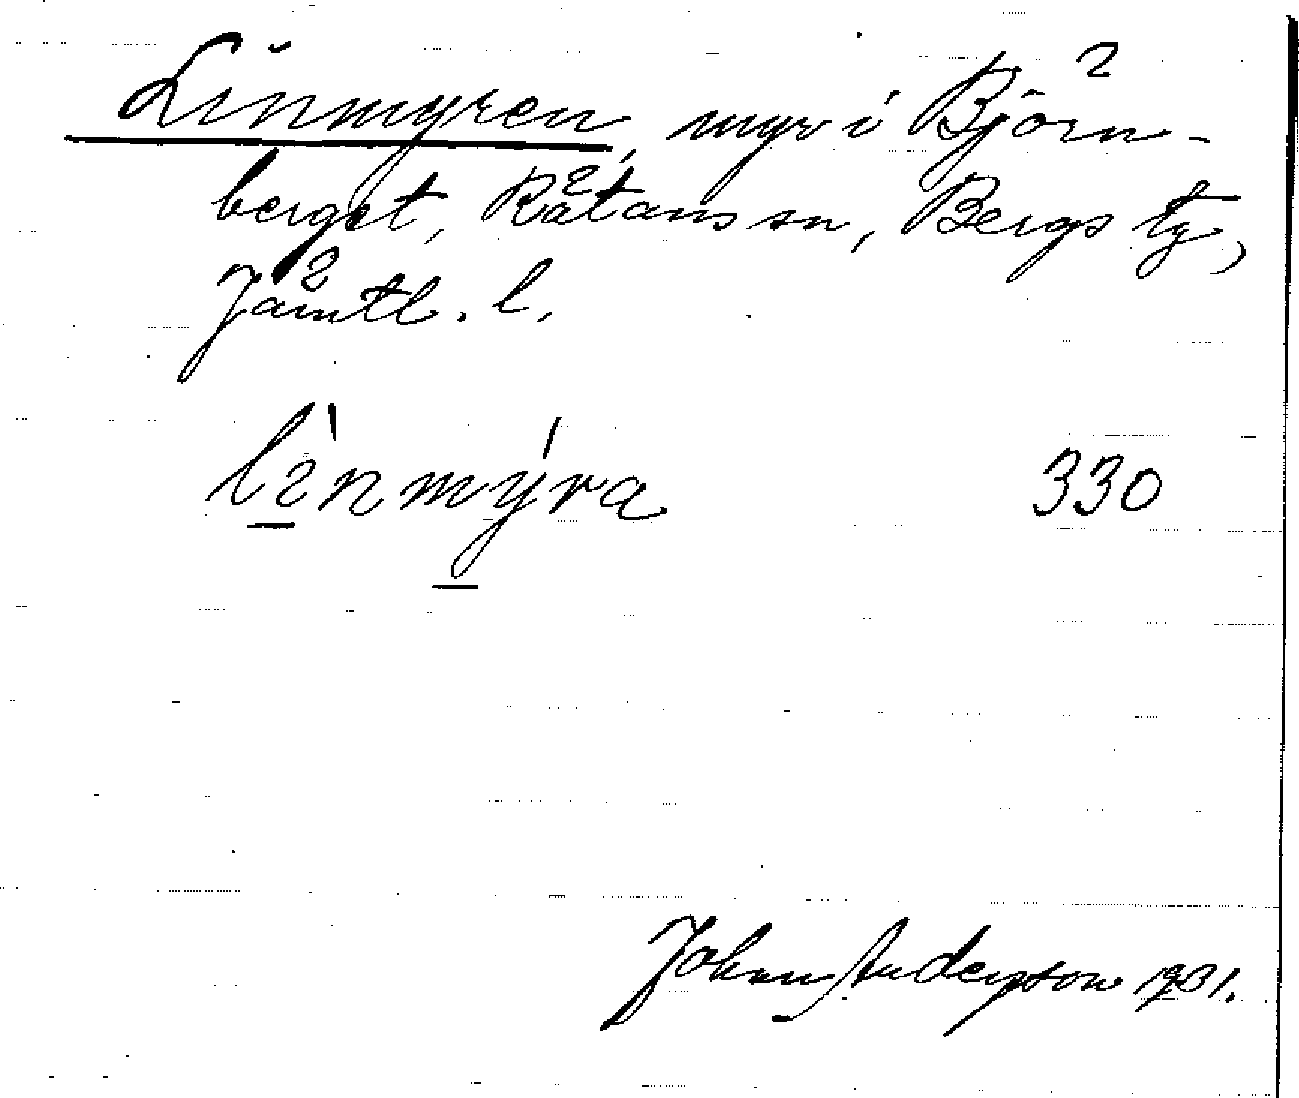 Linmyren, myr i Björn-
berget, Rätans sn, Bergs tg,
Jämtl. l.
lìnmýra 330
John Anderson 1931.